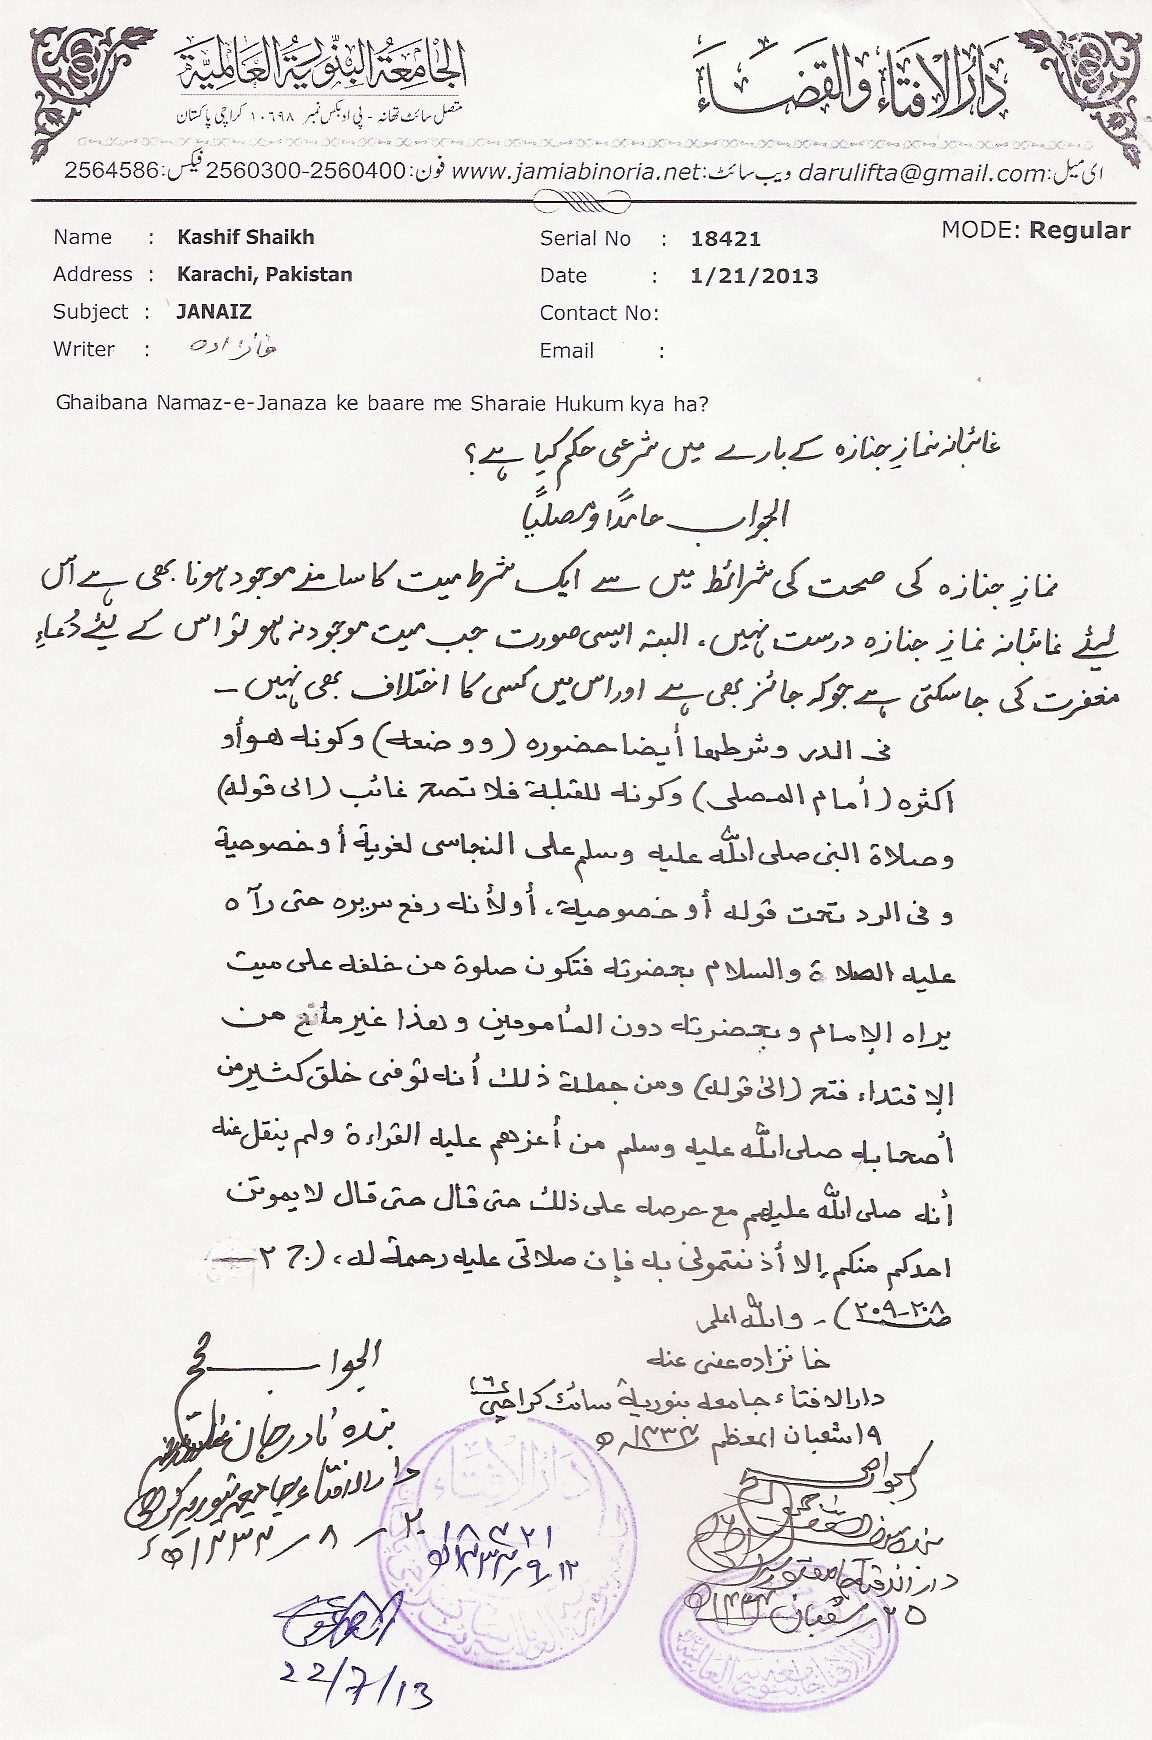 دَارُ الافتَاء والقضَاء
الجَامعَة البنّوريَّة العَالميَّة
متصل سائٹ تھانہ - پی او بکس نمبر ۱۰۶۹۸ کراچی پاکستان
ای میل: darulifta@gmail.com ویب سائٹ: www.jamiabinoria.net فون: 2560300-2560400 فیکس: 2564586
MODE: Regular
Name : Kashif Shaikh Serial No : 18421
Address : Karachi, Pakistan Date : 1/21/2013
Subject : JANAIZ Contact No:
Writer : خانزادہ Email :
Ghaibana Namaz-e-Janaza ke baare me Sharaie Hukum kya ha?
غائبانہ نمازِ جنازہ کے بارے میں شرعی حکم کیا ہے؟
الجواب حامدًا ومصلیًا
نمازِ جنازہ کی صحت کی شرائط میں سے ایک شرط میت کا سامنے موجود ہونا بھی ہے اس
لیئے غائبانہ نمازِ جنازہ درست نہیں۔ البتہ ایسی صورت جب میت موجود نہ ہو تو اس کے لیئے دُعاءِ
مغفرت کی جا سکتی ہے جو کہ جائز بھی ہے اور اس میں کسی کا اختلاف بھی نہیں ـ
فی الدر وشرطها أيضا حضوره (ووضعه) وكونه هو أو
أكثره (أمام المصلی) وكونه للقبلة فلا تصح غائب (الی قوله)
وصلاة النبی صلی الله علیه وسلم علی النجاسی لغوية أو خصوصية
وفی الرد تحت قوله أو خصوصية، أو لأنه رفع سريره حتی رآه
عليه الصلاة والسلام بحضرته فتكون صلوة من خلفه علی میت
يراه الإمام وبحضرته دون المأمومين وهذا غير مانع من
الإقتداء فتح (الی قوله) ومن جملة ذلك أنه توفی خلق كثير من
أصحابه صلی الله علیه وسلم من أعزهم عليه القراءة ولم ينقل عنه
أنه صلی الله عليهم مع حرصه علی ذلك حتی قال حتی قال لا يموتن
احدكم منكم إلا أذنتمونی به فإن صلاتی عليه رحمة له، (ج ۲
صـ ۲۰۸-۲۰۹) ـ والله اعلم
خانزادہ عفی عنه
دارالافتاء جامعه بنوریة سائٹ کراچی ۱۶
۱۹ شعبان المعظم ۱۴۳۴ھ
الجواب صحیح
بندہ نادر جان
دارالافتاء جامعه بنوریه کراچی
۲۰ـ۸ـ۱۴۳۴ھ
الجواب صحیح
دارالافتاء جامعه بنوریه
۲۵ شعبان ۱۴۳۴ھ
دار الافتاء
۱۸۴۲۱
۱۲ ر ۹ ر ۱۴۳۴ھ
22/7/13